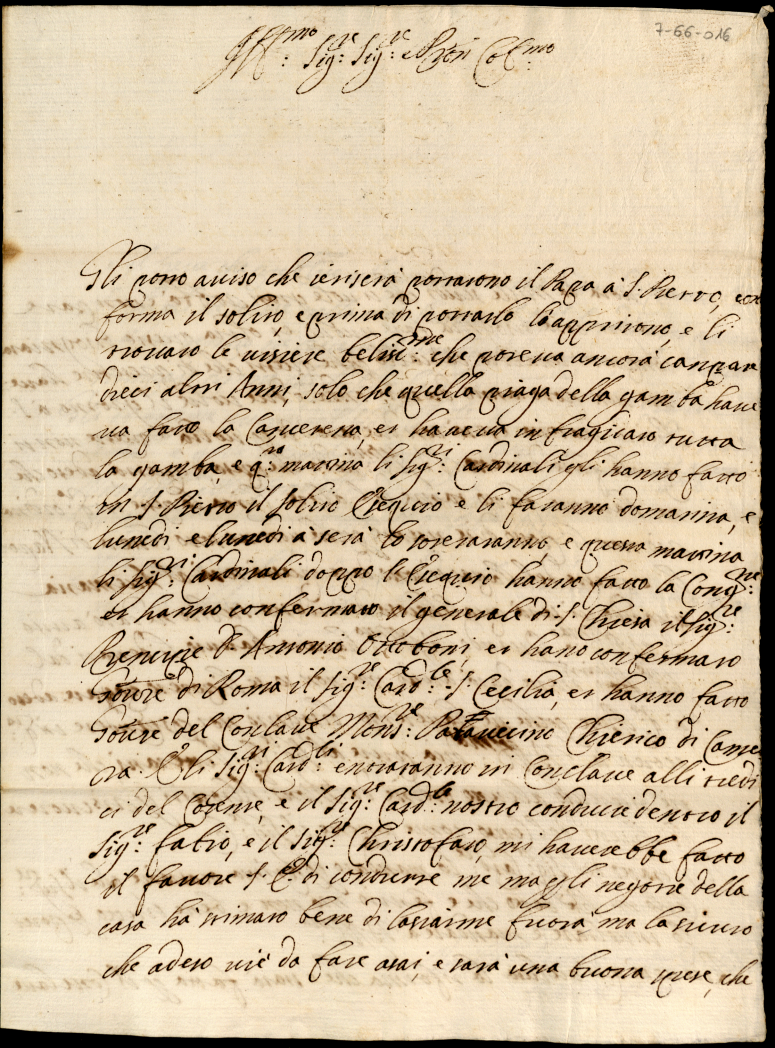 7-66-016
Ill:mo Sig:re Sig:re e Pron Col:mo
Gli porto aviso che ieriserà portarono il Papa à S. Pietro, con
forma il solito, e prima di portarlo l'apprirono, e li
trovaro le visiere belis:me che poteva ancora canpare
dieci altri Anni, solo che quella piaga della gamba have
va fatto la Cancerena, et haveva infragicato tutta
la gamba, e q:ta matina li Sig:ri Cardinali gli hanno fatto
in S. Pietro il solito Esequio e li faranno domatina, e
lunedì e lunedì à serà lo sotteraranno, e questa matina
li Sig:ri Cardinali doppo l'Esequio hanno fatto la Cong:ne
et hanno confermato il generale di S. Chiesa il Sig:re
Prencipe D. Antonio Ottoboni, et hano confermato
Govre di Roma il Sig:re Card:le S. Cecilia, et hanno fatto
Govre del Conclave Mons:re Palavicino Chierico di Came
ra. E li Sig:ri Card:li entraranno in Conclave alli tredi
ci del Corente, e il Sig:re Card:le nostro conduce dentro il
Sig:re fatio, e il Sig:re Christofaro, mi haverebbe fatto
il favore S. E. di condurre me ma p gli negotii della
casa hà stimato bene di lasciarme fuora ma lasicuro
che adeso vie da fare asai, e sarà una buona spese, che